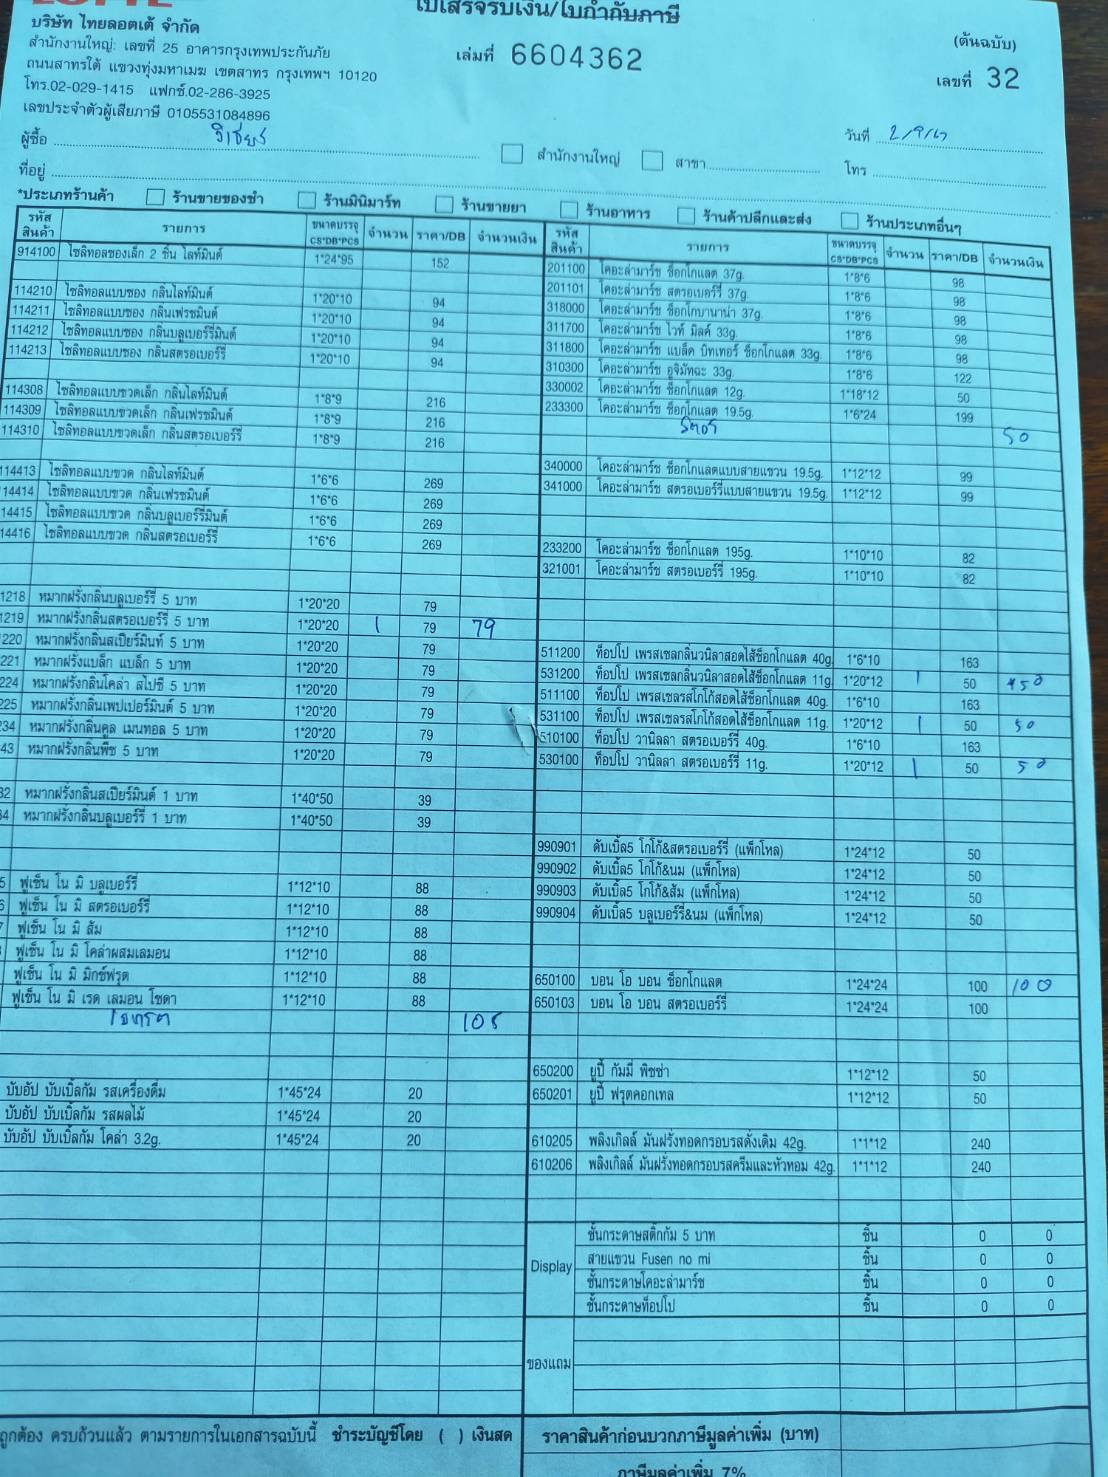 ใบเสร็จรับเงิน/ใบกำกับภาษี
บริษัท ไทยลอตเต้ จำกัด
สำนักงานใหญ่: เลขที่ 25 อาคารกรุงเทพประกันภัย
ถนนสาทรใต้ แขวงทุ่งมหาเมฆ เขตสาทร กรุงเทพฯ 10120
โทร.02-029-1415 แฟกซ์.02-286-3925
เลขประจำตัวผู้เสียภาษี 0105531084896
เล่มที่ 6604362
(ต้นฉบับ)
เลขที่ 32
ผู้ซื้อ วิเชียร
สำนักงานใหญ่ สาขา
วันที่
ที่อยู่
โทร
*ประเภทร้านค้า ร้านขายของชำ ร้านมินิมาร์ท ร้านขายยา ร้านอาหาร ร้านค้าปลีกและส่ง ร้านประเภทอื่นๆ
รหัสสินค้า รายการ ขนาดบรรจุ CS*DB*PCS จำนวน ราคา/DB จำนวนเงิน
914100 ไซลิทอลซองเล็ก 2 ชิ้น ไลท์มินต์ 1*24*95 152
114210 ไซลิทอลแบบซอง กลิ่นไลท์มินต์ 1*20*10 94
114211 ไซลิทอลแบบซอง กลิ่นเฟรชมินต์ 1*20*10 94
114212 ไซลิทอลแบบซอง กลิ่นบลูเบอร์รี่มินต์ 1*20*10 94
114213 ไซลิทอลแบบซอง กลิ่นสตรอเบอร์รี่ 1*20*10 94
114308 ไซลิทอลแบบขวดเล็ก กลิ่นไลท์มินต์ 1*8*9 216
114309 ไซลิทอลแบบขวดเล็ก กลิ่นเฟรชมินต์ 1*8*9 216
114310 ไซลิทอลแบบขวดเล็ก กลิ่นสตรอเบอร์รี่ 1*8*9 216
114413 ไซลิทอลแบบขวด กลิ่นไลท์มินต์ 1*6*6 269
14414 ไซลิทอลแบบขวด กลิ่นเฟรชมินต์ 1*6*6 269
14415 ไซลิทอลแบบขวด กลิ่นบลูเบอร์รี่มินต์ 1*6*6 269
14416 ไซลิทอลแบบขวด กลิ่นสตรอเบอร์รี่ 1*6*6 269
1218 หมากฝรั่งกลิ่นบลูเบอร์รี่ 5 บาท 1*20*20 79
1219 หมากฝรั่งกลิ่นสตรอเบอร์รี่ 5 บาท 1*20*20 1 79 79
220 หมากฝรั่งกลิ่นสเปียร์มินท์ 5 บาท 1*20*20 79
221 หมากฝรั่งแบล็ก แบล็ก 5 บาท 1*20*20 79
224 หมากฝรั่งกลิ่นโคล่า สไปซี่ 5 บาท 1*20*20 79
225 หมากฝรั่งกลิ่นเพปเปอร์มินต์ 5 บาท 1*20*20 79
234 หมากฝรั่งกลิ่นคูล เมนทอล 5 บาท 1*20*20 79
43 หมากฝรั่งกลิ่นพีช 5 บาท 1*20*20 79
32 หมากฝรั่งกลิ่นสเปียร์มินต์ 1 บาท 1*40*50 39
34 หมากฝรั่งกลิ่นบลูเบอร์รี่ 1 บาท 1*40*50 39
5 ฟูเซ็น โน มิ บลูเบอร์รี่ 1*12*10 88
6 ฟูเซ็น โน มิ สตรอเบอร์รี่ 1*12*10 88
ฟูเซ็น โน มิ ส้ม 1*12*10 88
ฟูเซ็น โน มิ โคล่าผสมเลมอน 1*12*10 88
ฟูเซ็น โน มิ มิกซ์ฟรุต 1*12*10 88
ฟูเซ็น โน มิ เรด เลมอน โซดา 1*12*10 88
105
บับอัป บับเบิ้ลกัม รสเครื่องดื่ม 1*45*24 20
บับอัป บับเบิ้ลกัม รสผลไม้ 1*45*24 20
บับอัป บับเบิ้ลกัม โคล่า 3.2g. 1*45*24 20
รหัสสินค้า รายการ ขนาดบรรจุ CS*DB*PCS จำนวน ราคา/DB จำนวนเงิน
201100 โคอะล่ามาร์ช ช็อกโกแลต 37g. 1*8*6 98
201101 โคอะล่ามาร์ช สตรอเบอร์รี่ 37g. 1*8*6 98
318000 โคอะล่ามาร์ช ช็อกโกบานาน่า 37g. 1*8*6 98
311700 โคอะล่ามาร์ช ไวท์ มิลค์ 33g. 1*8*6 98
311800 โคอะล่ามาร์ช แบล็ค บิทเทอร์ ช็อกโกแลต 33g. 1*8*6 98
310300 โคอะล่ามาร์ช อูจิมัทฉะ 33g. 1*8*6 122
330002 โคอะล่ามาร์ช ช็อกโกแลต 12g. 1*18*12 50
233300 โคอะล่ามาร์ช ช็อกโกแลต 19.5g. 1*6*24 199
50
340000 โคอะล่ามาร์ช ช็อกโกแลตแบบสายแขวน 19.5g. 1*12*12 99
341000 โคอะล่ามาร์ช สตรอเบอร์รี่แบบสายแขวน 19.5g. 1*12*12 99
233200 โคอะล่ามาร์ช ช็อกโกแลต 195g. 1*10*10 82
321001 โคอะล่ามาร์ช สตรอเบอร์รี่ 195g. 1*10*10 82
511200 ท็อปโป เพรสเซลกลิ่นวนิลาสอดไส้ช็อกโกแลต 40g. 1*6*10 163
531200 ท็อปโป เพรสเซลกลิ่นวนิลาสอดไส้ช็อกโกแลต 11g. 1*20*12 1 50 50
511100 ท็อปโป เพรสเซลรสโกโก้สอดไส้ช็อกโกแลต 40g. 1*6*10 163
531100 ท็อปโป เพรสเซลรสโกโก้สอดไส้ช็อกโกแลต 11g. 1*20*12 1 50 50
510100 ท็อปโป วานิลลา สตรอเบอร์รี่ 40g. 1*6*10 163
530100 ท็อปโป วานิลลา สตรอเบอร์รี่ 11g. 1*20*12 1 50 50
990901 ดับเบิ้ล5 โกโก้&สตรอเบอร์รี่ (แพ็กโหล) 1*24*12 50
990902 ดับเบิ้ล5 โกโก้&นม (แพ็กโหล) 1*24*12 50
990903 ดับเบิ้ล5 โกโก้&ส้ม (แพ็กโหล) 1*24*12 50
990904 ดับเบิ้ล5 บลูเบอร์รี่&นม (แพ็กโหล) 1*24*12 50
650100 บอน โอ บอน ช็อกโกแลต 1*24*24 100 100
650103 บอน โอ บอน สตรอเบอร์รี่ 1*24*24 100
650200 ยูปี้ กัมมี่ พิซซ่า 1*12*12 50
650201 ยูปี้ ฟรุตคอกเทล 1*12*12 50
610205 พลิงเกิลส์ มันฝรั่งทอดกรอบรสดั้งเดิม 42g. 1*1*12 240
610206 พลิงเกิลส์ มันฝรั่งทอดกรอบรสครีมและหัวหอม 42g. 1*1*12 240
Display
ชั้นกระดาษสติ๊กกัม 5 บาท ชิ้น 0 0
สายแขวน Fusen no mi ชิ้น 0 0
ชั้นกระดาษโคอะล่ามาร์ช ชิ้น 0 0
ชั้นกระดาษท็อปโป ชิ้น 0 0
ของแถม
ถูกต้อง ครบถ้วนแล้ว ตามรายการในเอกสารฉบับนี้ ชำระบัญชีโดย ( ) เงินสด
ราคาสินค้าก่อนบวกภาษีมูลค่าเพิ่ม (บาท)
ภาษีมูลค่าเพิ่ม 7%